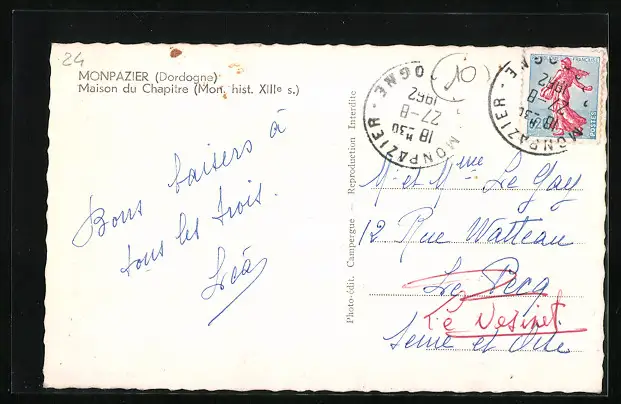 24
MONPAZIER (Dordogne)
Maison du Chapitre (Mon. hist. XIIIe s.)
Bons baisers à
tous les trois.
Léa
Photo-édit. Campergue — Reproduction Interdite
10
MONPAZIER - DOGNE
18 H 30
27-8
1962
MONPAZIER - DOGNE
18 H 30
27-8
1962
FRANÇAISE
POSTES
Mr et Mme Le Gay
12 Rue Watteau
Le Pecq
Le Vesinet
Seine et Oise